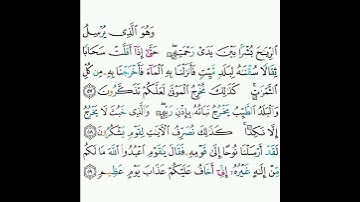 وَهُوَ ٱلَّذِى يُرْسِلُ
ٱلرِّيَٰحَ بُشْرًۢا بَيْنَ يَدَىْ رَحْمَتِهِۦ ۖ حَتَّىٰٓ إِذَآ أَقَلَّتْ سَحَابًا
ثِقَالًا سُقْنَٰهُ لِبَلَدٍ مَّيِّتٍ فَأَنزَلْنَا بِهِ ٱلْمَآءَ فَأَخْرَجْنَا بِهِۦ مِن كُلِّ
ٱلثَّمَرَٰتِ ۚ كَذَٰلِكَ نُخْرِجُ ٱلْمَوْتَىٰ لَعَلَّكُمْ تَذَكَّرُونَ ٥٧
وَٱلْبَلَدُ ٱلطَّيِّبُ يَخْرُجُ نَبَاتُهُۥ بِإِذْنِ رَبِّهِۦ ۖ وَٱلَّذِى خَبُثَ لَا يَخْرُجُ
إِلَّا نَكِدًا ۚ كَذَٰلِكَ نُصَرِّفُ ٱلْءَايَٰتِ لِقَوْمٍ يَشْكُرُونَ ٥٨
لَقَدْ أَرْسَلْنَا نُوحًا إِلَىٰ قَوْمِهِۦ فَقَالَ يَٰقَوْمِ ٱعْبُدُوا۟ ٱللَّهَ مَا لَكُم
مِّنْ إِلَٰهٍ غَيْرُهُۥٓ إِنِّىٓ أَخَافُ عَلَيْكُمْ عَذَابَ يَوْمٍ عَظِيمٍ ٥٩